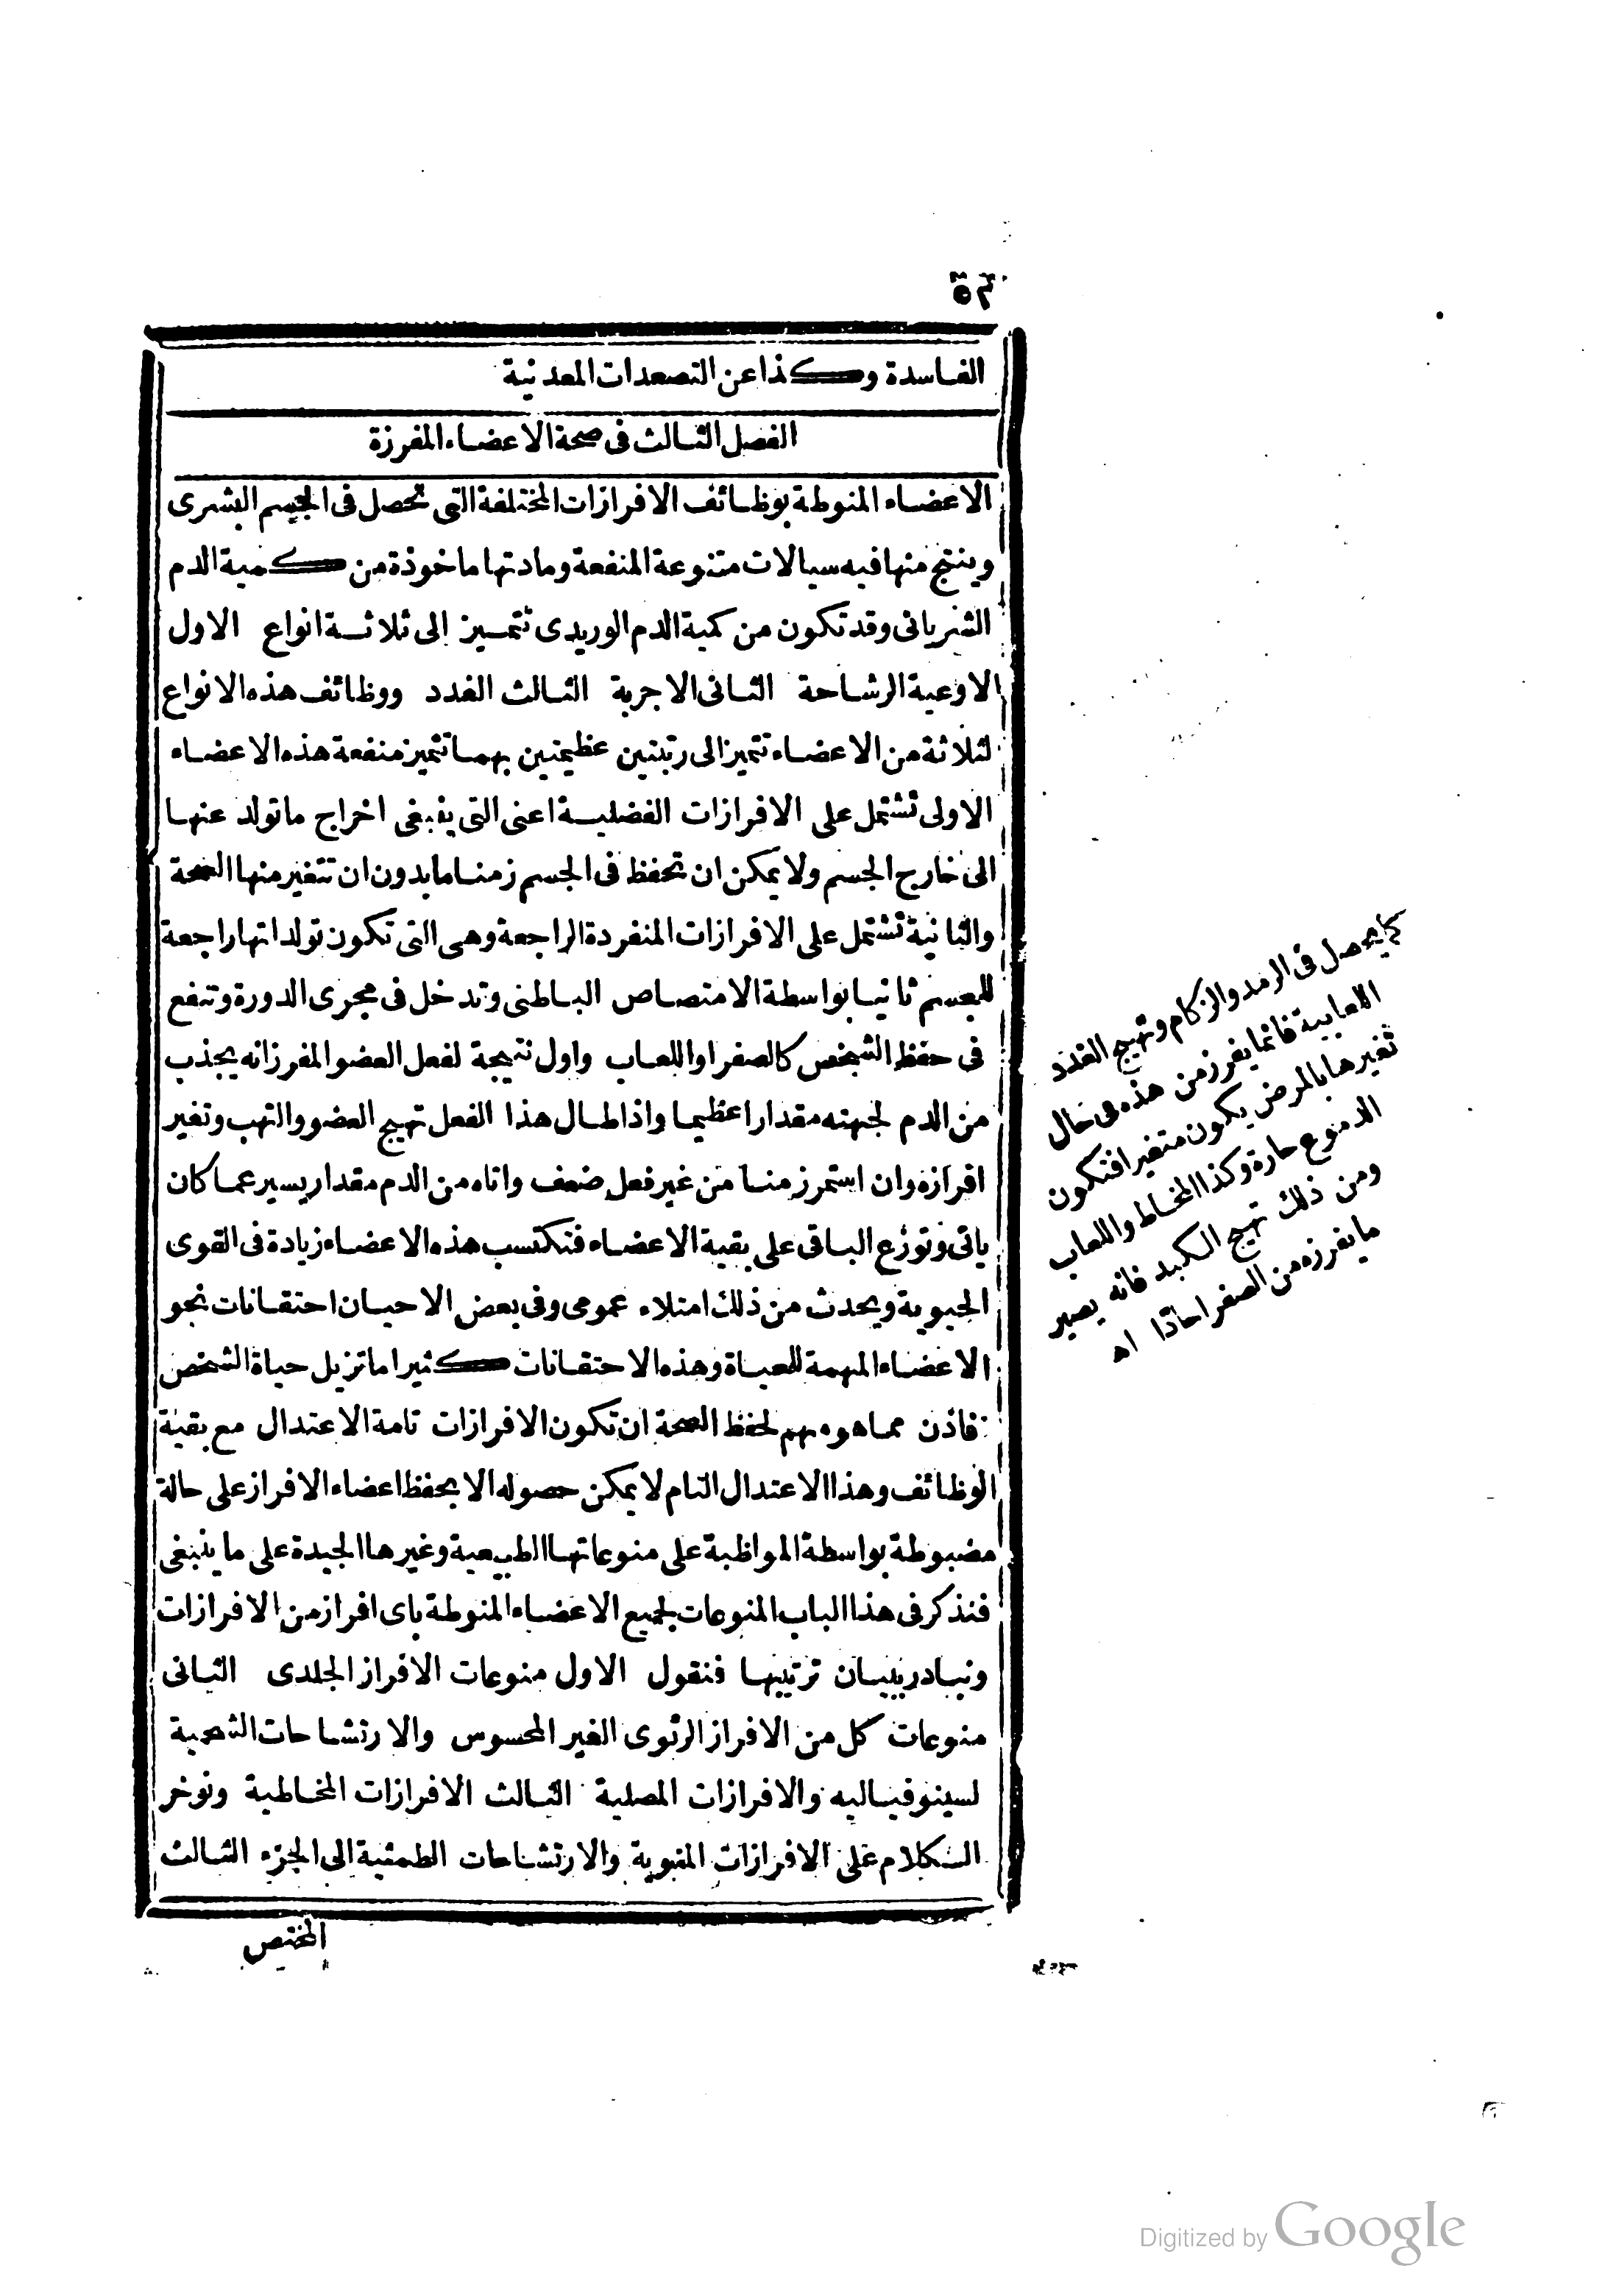 الفاسدة وكذا عن التصعدات المعدنية
الفصل الثالث فى صحة الاعضاء المفرزة
الاعضاء المنوطة بوظائف الافرازات المختلفة التى تحصل فى الجسم البشرى
وينتج منها فيه سيالات متنوعة المنفعة ومادتها ماخوذة من كمية الدم
الشريانى وقد تكون من كمية الدم الوريدى تتميز الى ثلاثة انواع الاول
الاوعية الرشاحة الثانى الاجربة الثالث الغدد ووظائف هذه الانواع
لثلاثة من الاعضاء تتميز الى رتبتين عظيمتين بهما تتميز منفعة هذه الاعضاء
الاولى تشتمل على الافرازات الفضلية اعنى التى ينبغى اخراج ما تولد عنها
الى خارج الجسم ولا يمكن ان تحفظ فى الجسم زمنا ما بدون ان تتغير منها الصحة
والثانية تشتمل على الافرازات المنفردة الراجعة وهى التى تكون تولداتها راجعة
للجسم ثانيا بواسطة الامتصاص الباطنى وتدخل فى مجرى الدورة وتنفع
فى حفظ الشخص كالصفرا واللعاب واول نتيجة لفعل العضو المفرز انه يجذب
من الدم لجهته مقدارا عظيما واذا طال هذا الفعل تهيج العضو والتهب وتغير
افرازه وان استمر زمنا من غير فعل ضعف واتاه من الدم مقدار يسير عما كان
ياتى وتوزع الباقى على بقية الاعضاء فتكتسب هذه الاعضاء زيادة فى القوى
الحيوية ويحدث من ذلك امتلاء عمومى وفى بعض الاحيان احتقانات نحو
الاعضاء المهمة للحياة وهذه الاحتقانات كثيرا ما تزيل حياة الشخص
فاذن مما هو مهم لحفظ الصحة ان تكون الافرازات تامة الاعتدال مع بقية
الوظائف وهذا الاعتدال التام لا يمكن حصوله الا بحفظ اعضاء الافراز على حالة
مضبوطة بواسطة المواظبة على منوعاتها الطبيعية وغيرها الجيدة على ما ينبغى
فنذكر فى هذا الباب المنوعات لجميع الاعضاء المنوطة باى افراز من الافرازات
ونبادر ببيان ترتيبها فنقول الاول منوعات الافراز الجلدى الثانى
منوعات كل من الافراز الرئوى الغير المحسوس والارتشاحات الشحمية
لسينوفياليه والافرازات المصلية الثالث الافرازات المخاطية ونوخر
الكلام على الافرازات المنوية والارتشاحات الطمثية الى الجزء الثالث
المختص
كما يحصل فى الرمد والزكام وتهيج الغدد
اللعابية فانما يفرز من هذه فى حال
تغيرها بالمرض يكون متغيرا فتكون
الدموع حارة وكذا المخاط واللعاب
ومن ذلك تهيج الكبد فانه يصير
ما يفرزه من الصفرا حادا اه
Digitized by Google